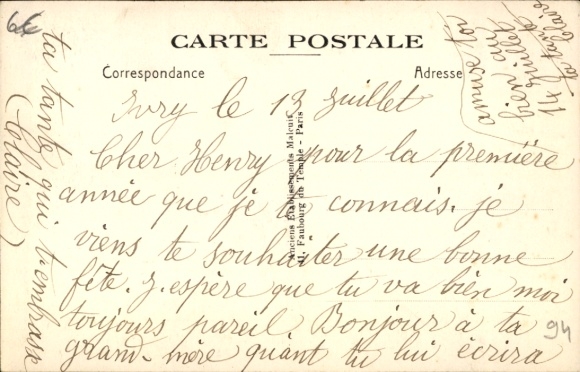 CARTE POSTALE
Correspondance
Adresse
Ivry le 13 Juillet
Cher Henry pour la première
année que je te connais. je
viens te souhaiter une bonne
fête. J. espère que tu va bien moi
toujours pareil Bonjour à ta
grand-mère quant tu lui écrira
ta tante qui t-embrasse
(Claire)
amuse toi
bien au
14 Juillet
ta tante
Claire
Anciens Etablissements Malcuit
41, Faubourg du Temple - Paris
94